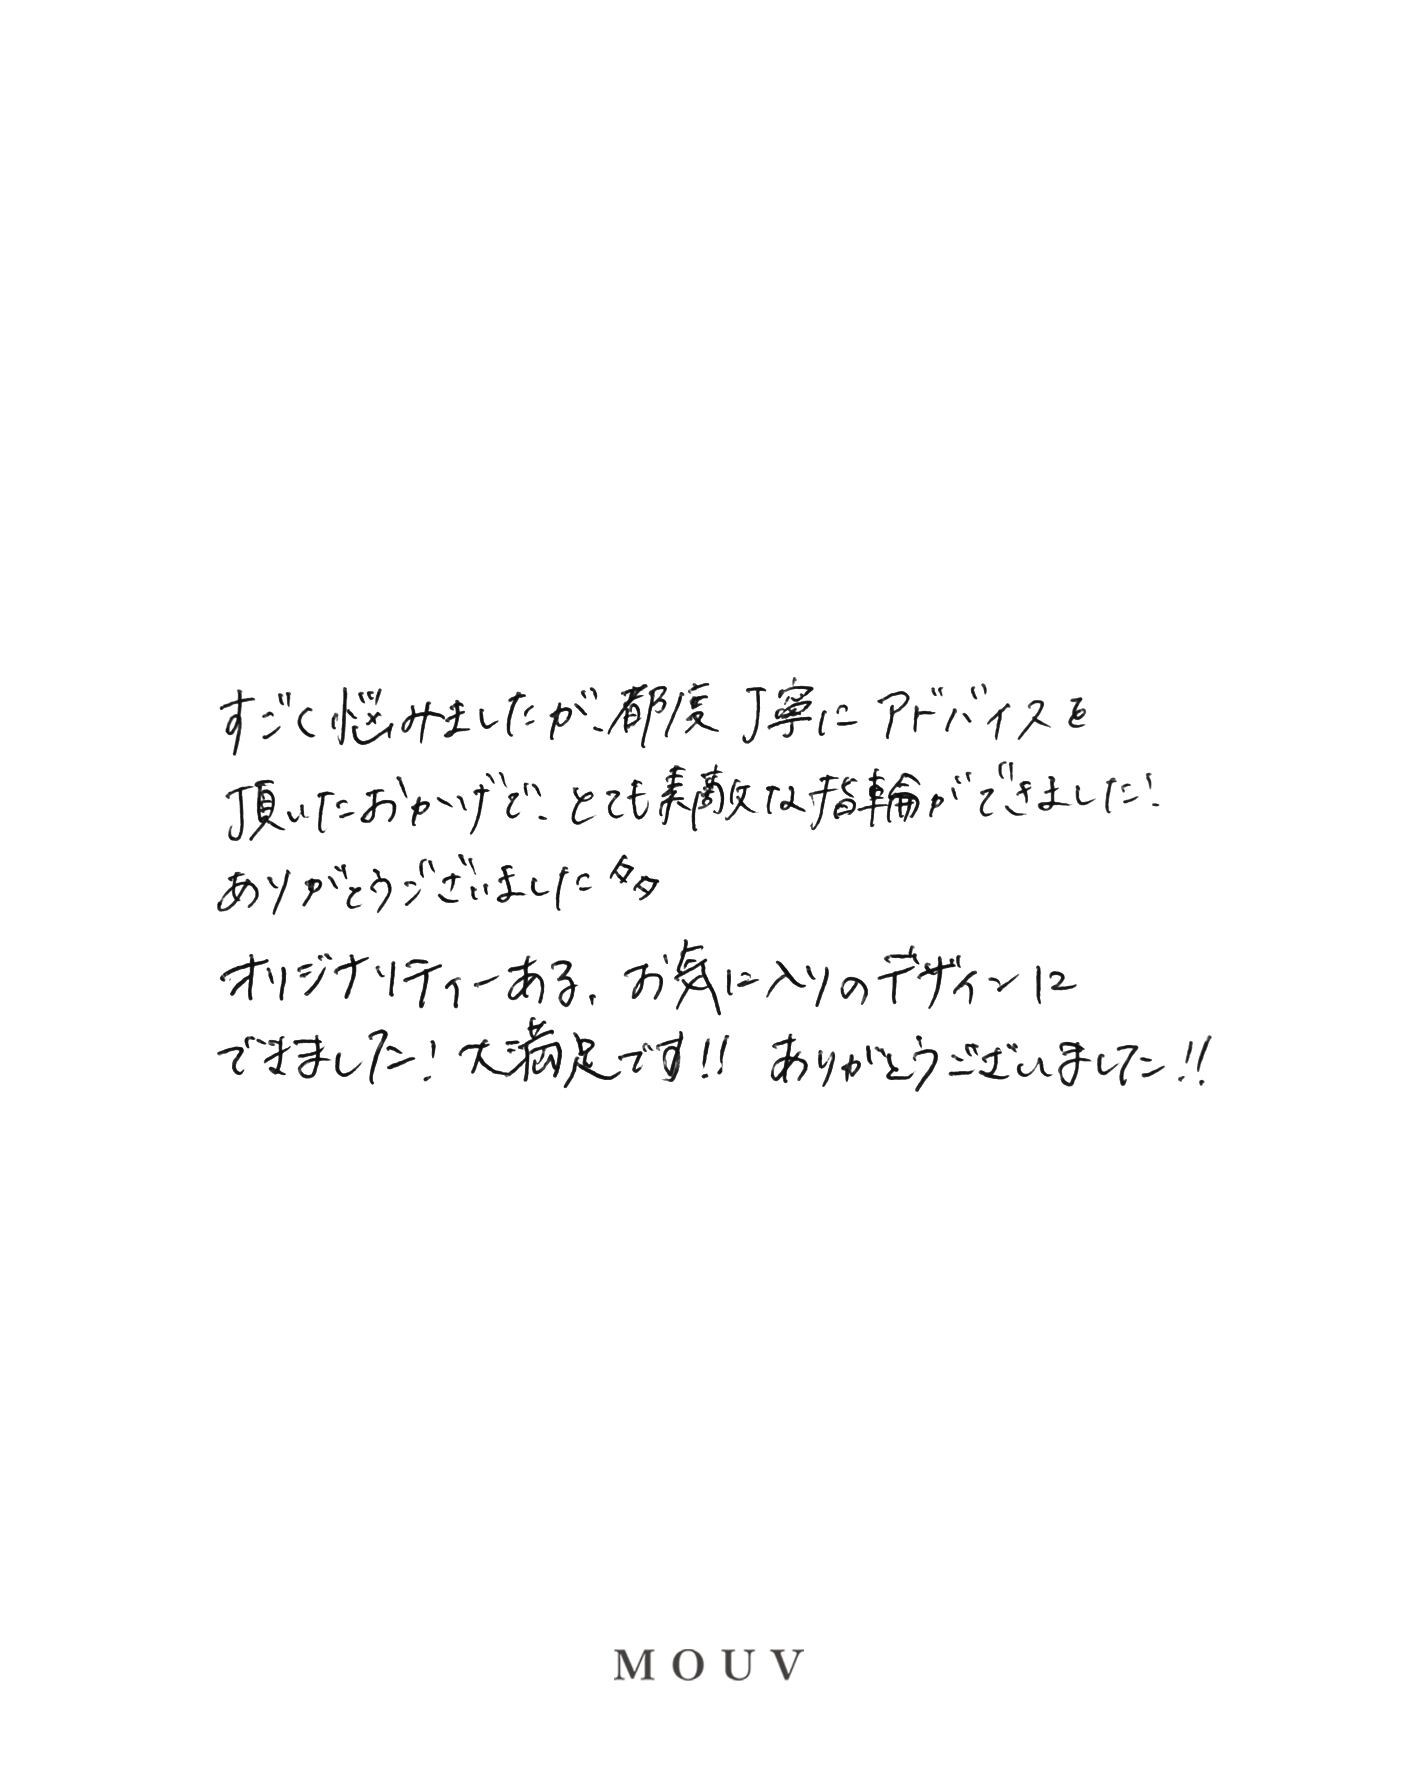 すごく悩みましたが、都度 丁寧に アドバイスを
頂いたおかげで、とても素敵な指輪ができました!
ありがとうございました☆☆
オリジナリティーある、お気に入りのデザインに
できました! 大満足です!! ありがとうございました!!
MOUV